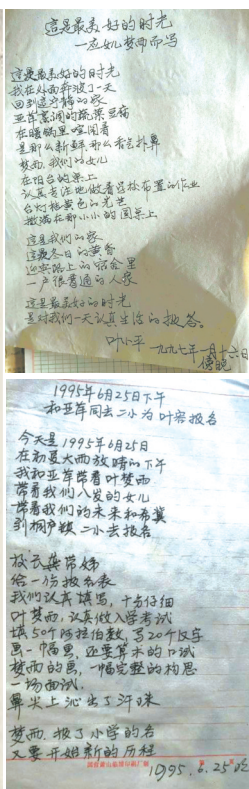 这是最美好的时光
—应女儿梦西而写
这是最美好的时光
我在外面奔波了一天
回到这宁静的家
亚军烹调的蔬菜豆腐
在暖锅里喧闹着
是那么新鲜那么香气扑鼻
梦西，我们的女儿
在阳台的桌上
认真专注地做着学校布置的作业
台灯橙黄色的光芒
撒满在那小小的圆桌上
这是我们的家
这是冬日的黄昏
迎宾路上的宿舍里
一户很普通的人家
这是最美好的时光
是对我们一天认真生活的报答。
叶小平 一九九七年一月十六日
傍晚
1995年6月25日下午
和亚军同去二小为叶梦西报名
今天是1995年6月25日
在初夏大雨放晴的下午
我和亚军带着叶梦西
带着我们八岁的女儿
带着我们的未来和希冀
到桐庐镇二小去报名
校长龚常娣
给一份报名表
我们认真填写，十分仔细
叶梦西，认真做入学考试
填50个阿拉伯数，写20个汉字
画一幅画，还要算术的口试
梦西的画，一幅完整的构思
一场面试，
鼻尖上沁出了汗珠
梦西，报了小学的名
又要开始新的历程
1995.6.25晚